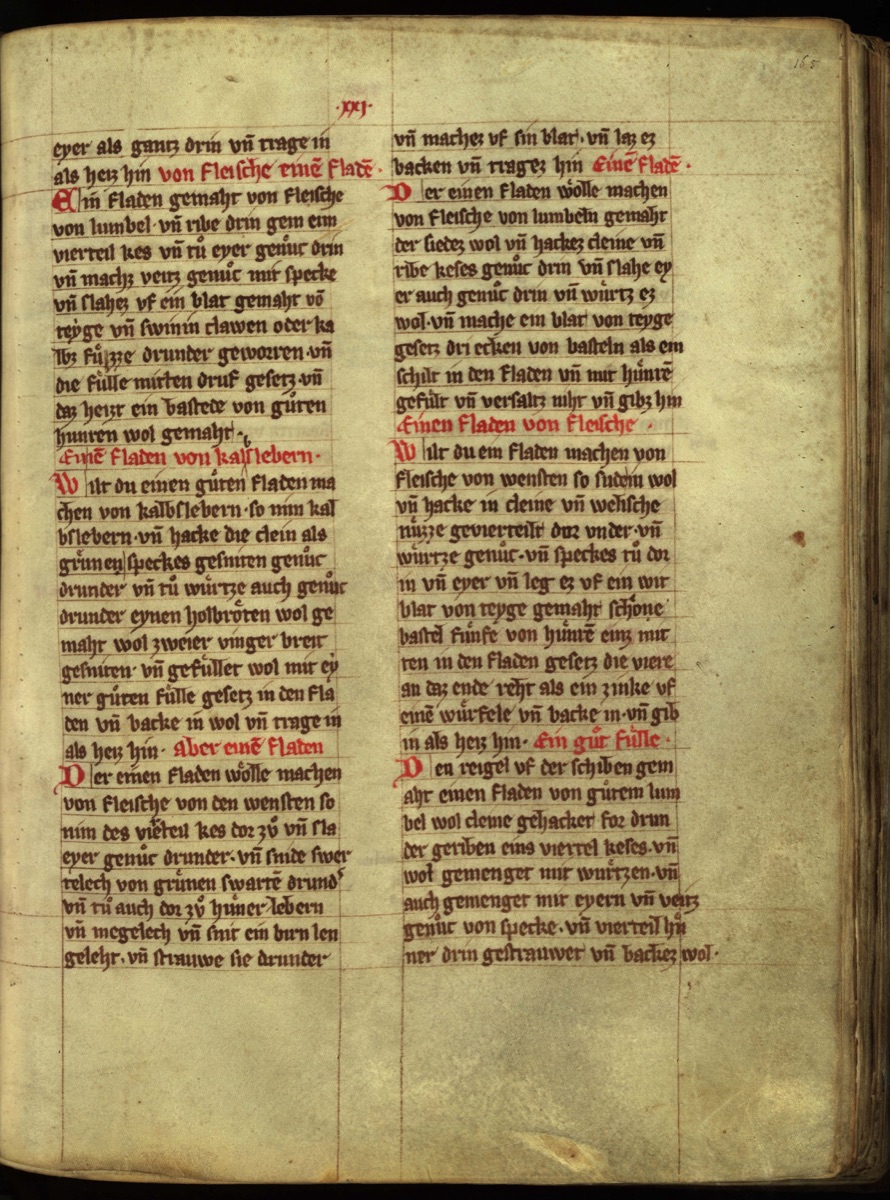 165
·xxj·
eyer als gantz drin vñ trage in
als heiz hin von fleische einē fladē·
Ein fladen gemaht von fleische
von lumbel· vñ ribe drin gem ein
vierteil kes vñ tuͦ eyer genuͦc drin
vñ machz veitz genuͦc mit specke
vñ slahez vf ein blat gemaht vō
teyge vñ swinin clawen oder ka
lbz fuͤzze drunder geworren· vñ
die fuͤlle mitten druf gesetz· vñ
daz heizt ein bastede von guͦten
hunren wol gemaht·
Einē fladen von kalslebern·
Wilt du einen guͦten fladen ma
chen von kalbslebern· so nim kal
bslebern· vñ hacke die clein als
gruͤnen speckes gesniten genuͦc
drunder vñ tuͦ wuͤrtze auch genuͦc
drunder eynen holbroͤten wol ge
maht wol zweier vinger breit
gesniten· vñ gefuͤllet wol mit ey
ner guͦten fuͤlle gesetz in den fla
den vñ backe in wol vñ trage in
als heiz hin· Aber einē fladen
Der einen fladen woͤlle machen
von fleische von den wensten so
nim des vierteil kes dor zuͦ vñ sla
eyer genuͦc drunder· vñ snide swer
telech von gruͤnen swartē drund᾽
vñ tuͦ auch dor zuͦ huͤner lebern
vñ megelech vñ snit ein birn len
geleht· vñ strauwe sie drunder
vñ machez vf sin blat· vñ laz ez
backen vñ tragez hin Einē fladē·
Der einen fladen woͤlle machen
von fleische von lumbeln gemaht
der siedez wol vñ hackez cleine vñ
ribe keses genuͦc drin vñ slahe ey
er auch genuͦc drin vñ wuͤrtz ez
wol· vñ mache ein blat von teyge
gesetz dri ecken von basteln als ein
schilt in den fladen vñ mit huͤnrē
gefuͤlt vñ versaltz niht vñ gibz hin
Einen fladen von fleische·
Wilt du ein fladen machen von
fleische von wensten so sudein wol
vñ hacke in cleine vñ welische
nuͤzze gevierteilt dor vnder· vñ
wuͤrtze genuͦc· vñ speckes tuͦ dor
in vñ eyer vñ leg ez vf ein wit
blat von teyge gemaht schoͤne
bastel fuͤnfe von huͤnrē einz mit
ten in den fladen gesetz die viere
an daz ende reht als ein zinke vf
einē wuͤrfele vñ backe in· vñ gib
in als heiz hin· Ein guͦt fuͤlle·
Den reigel vf der schiben gem
aht einen fladen von guͦtem lum
bel wol cleine gehacket for drun
der geriben eins viertel keses· vñ
wol gemenget mit wuͤrtzen· vñ
auch gemenget mit eyern vñ veitz
genuͦc von specke· vñ vierteil huͤ
ner drin gestrauwet vñ backez wol·